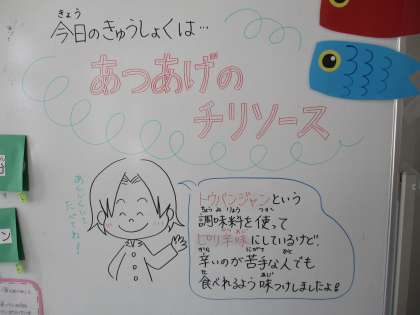 きょう
今日のきゅうしょくは…
あつあげの
チリソース
トウバンジャンという
ちょうみりょう つか
調味料を使って
ピリ辛味にしているけど、
から にがて
辛いのが苦手な人でも
食べれるよう味つけしましたよ!